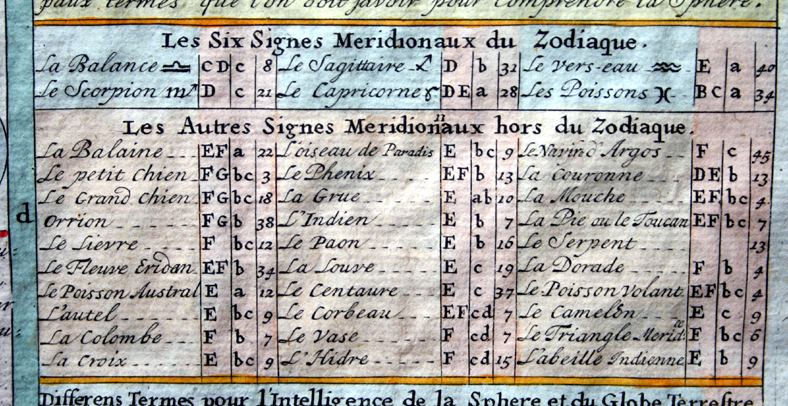 paux termes que l'on doit sçavoir pour comprendre la Sphere.
Les Six Signes Meridionaux du Zodiaque.
La Balance ♎ C D c 8 Le Sagittaire ♐ D b 31 Le vers-eau ♒ E a 40
Le Scorpion ♏ D c 21 Le Capricorne ♑ D E a 28 Les Poissons ♓ B c a 34
Les Autres Signes Meridionaux hors du Zodiaque.
La Balaine E F a 22 L'oiseau de Paradis E bc 9 Le Navire d'Argos F c 45
Le petit Chien F G bc 3 Le Phenix E F b 13 La Couronne D E b 13
Le Grand Chien F G bc 18 La Grue E ab 10 La Mouche E F bc 4
d Orrion F G b 38 L'Indien E b 7 La Pie ou le Toucan E F bc 7
Le Lievre F bc 12 Le Paon E b 16 Le Serpent 13
Le Fleuve Eridan E F b 34 La Louve E c 19 La Dorade F b 4
Le Poisson Austral E a 12 Le Centaure E c 37 Le Poisson Volant E F bc 4
L'autel E bc 9 Le Corbeau E F cd 7 Le Cameleon E c 9
La Colombe F b 7 Le Vase F cd 7 Le Triangle Merid. F bc 6
La Croix E bc 9 L'Hidre F cd 15 L'abeille Indienne E b 9
Differens Termes pour l'Intelligence de la Sphere et du Globe Terrestre